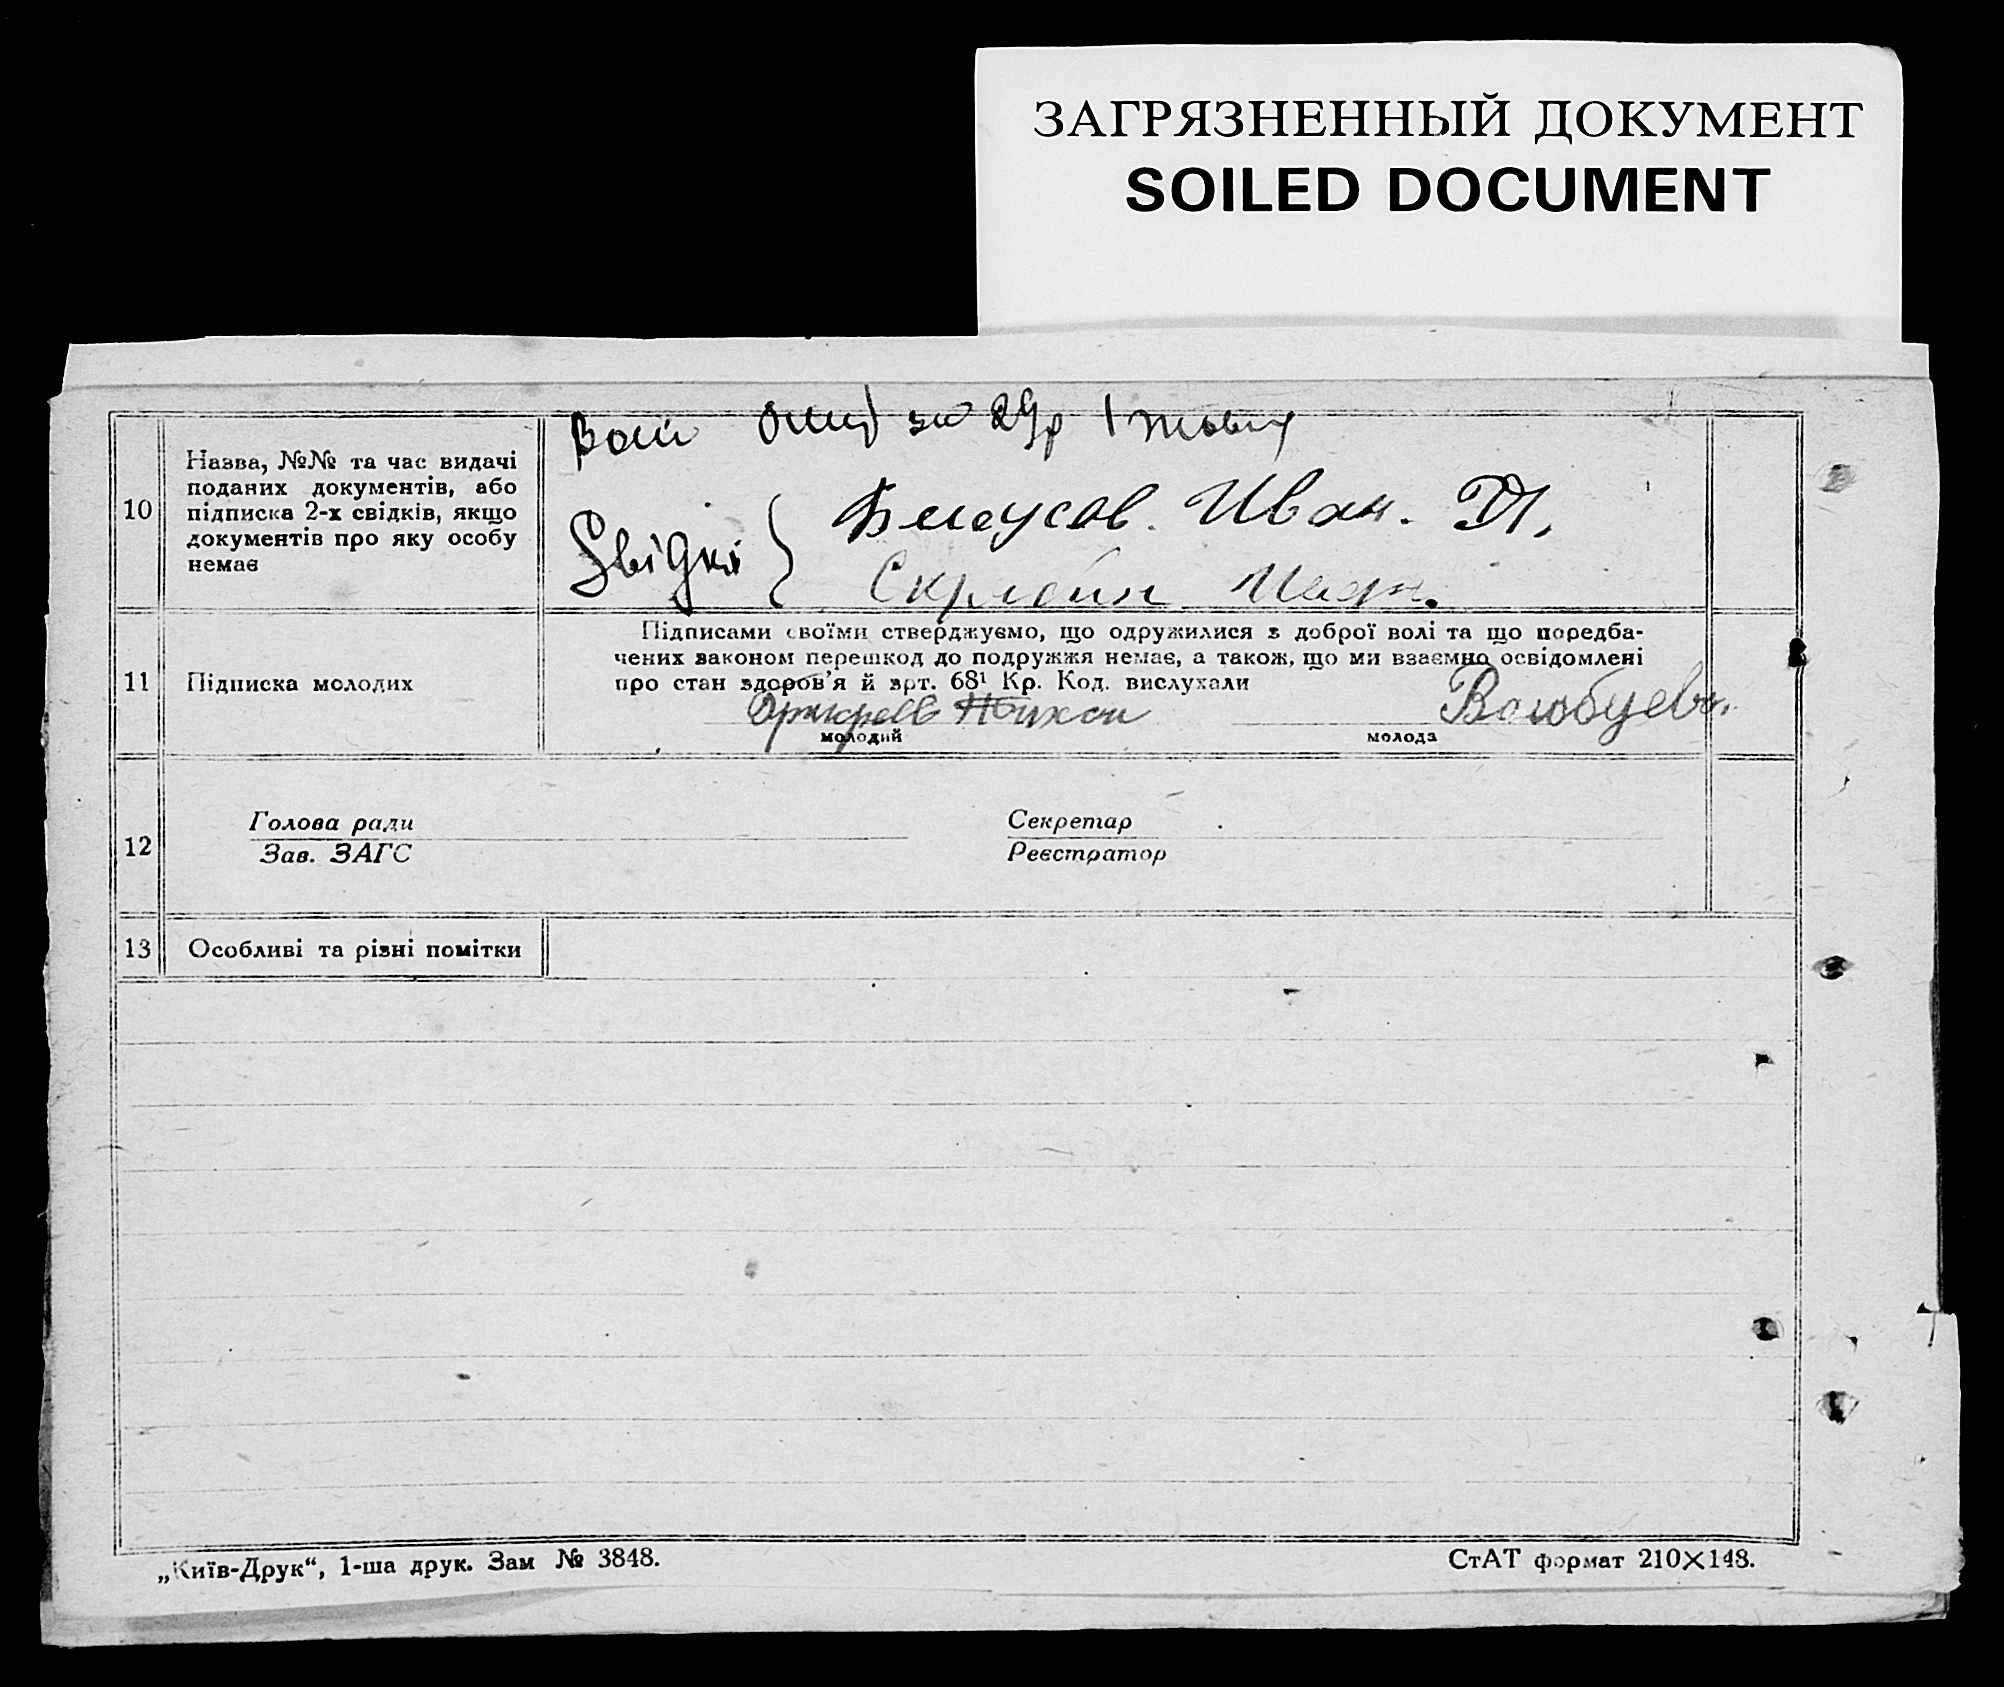 ЗАГРЯЗНЕННЫЙ ДОКУМЕНТ
SOILED DOCUMENT
за 29р 1
10
Назва, №№ та час видачі
поданих документів, або
підписка 2-х свідків, якщо
документів про яку особу
немає
Свідки } Белоусов. Иван. П.
Иван.
11
Підписка молодих
Підписами своїми стверджуємо, що одружилися з доброї волі та що передба-
чених законом перешкод до подружжя немає, а також, що ми взаємно освідомлені
про стан здоров'я й арт. 68¹ Кр. Код. вислухали
молодий
молода
12
Голова ради
Зав. ЗАГС
Секретар
Реєстратор
13
Особливі та різні помітки
„Київ-Друк“, 1-ша друк. Зам № 3848.
СтАТ формат 210×148.